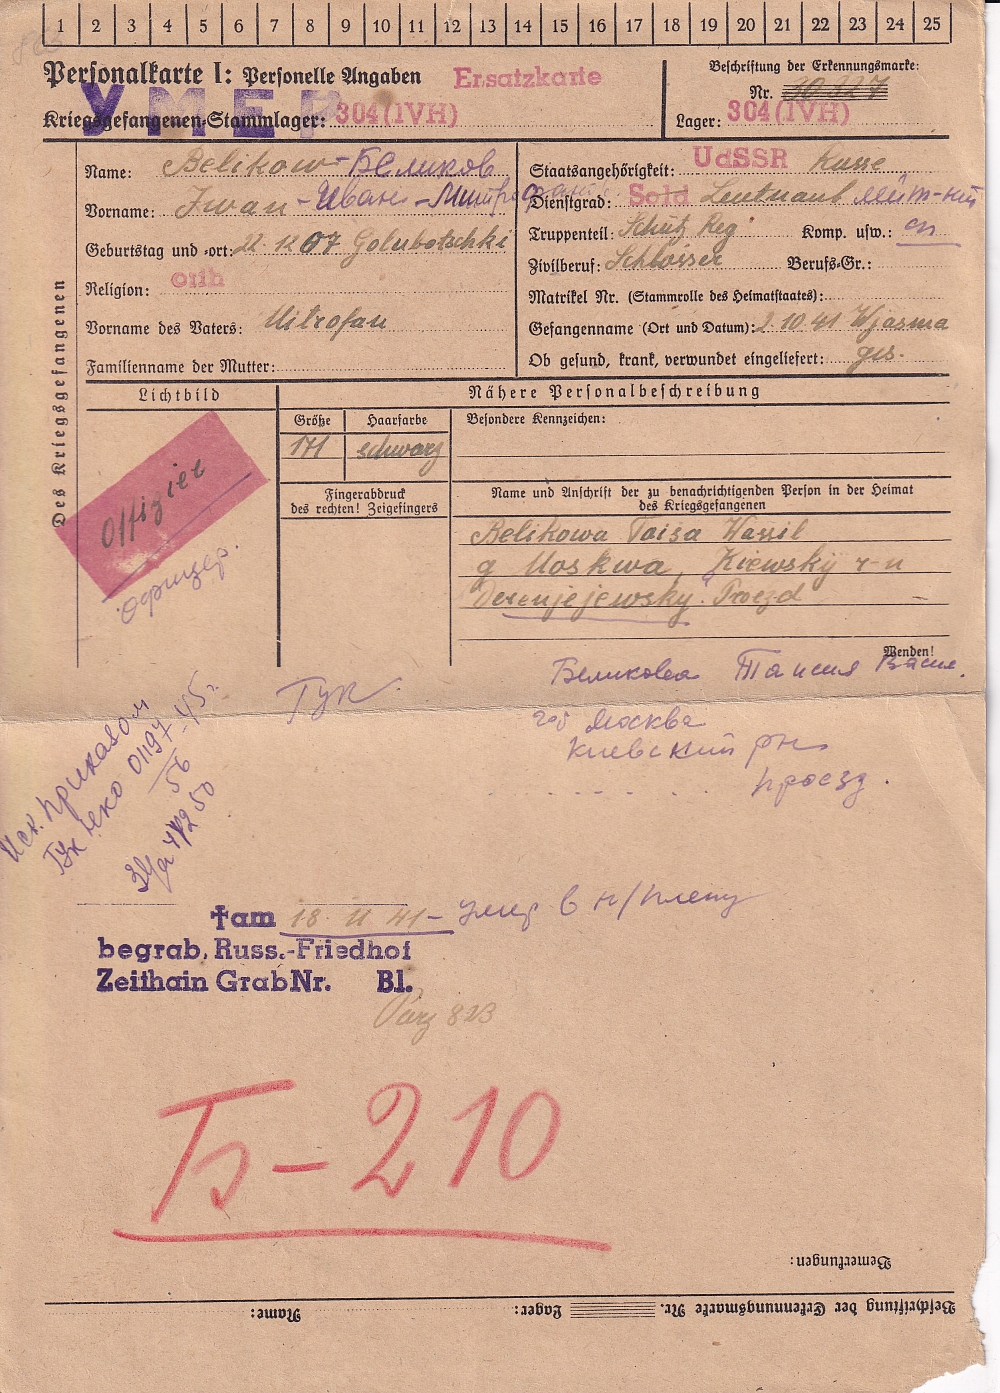 1 2 3 4 5 6 7 8 9 10 11 12 13 14 15 16 17 18 19 20 21 22 23 24 25
Personalkarte I: Personelle Angaben
Ersatzkarte
Beschriftung der Erkennungsmarke:
Nr. 30227
УМЕР
Kriegsgefangenen-Stammlager: 304 (IVH)
Lager: 304 (IVH)
Des Kriegsgefangenen
Name: Belikow - Беликов
Vorname: Iwan - Иван - Митрофан
Geburtstag und -ort: 22.12.07 Golubotschki
Religion: orth
Vorname des Vaters: Mitrofan
Familienname der Mutter:
Staatsangehörigkeit: UdSSR Russe
Dienstgrad: Sold Leutnant лейт-нт
Truppenteil: Schütz Reg Komp. usw.: сп
Zivilberuf: Schlosser Berufs-Gr.:
Matrikel Nr. (Stammrolle des Heimatstaates):
Gefangenname (Ort und Datum): 2.10.41 Wjasma
Ob gesund, krank, verwundet eingeliefert: ges.
Lichtbild
Offizier
офицер.
Nähere Personalbeschreibung
Größe Haarfarbe Besondere Kennzeichen:
171 schwarz
Fingerabdruck
des rechten! Zeigefingers
Name und Anschrift der zu benachrichtigenden Person in der Heimat
des Kriegsgefangenen
Belikowa Taisa Wassil
g Moskwa, Kiewsky r-n
Proezd
Wenden!
Беликова Таисия Васил.
гор Москва
Киевский рн
проезд.
Гук
Иск. приказом
Гук 01197 45г.
56
†am 18 11 41 - умер в н/плену
begrab. Russ.-Friedhof
Zeithain Grab Nr. Bl.
Parz 823
Б-210
Bemerkungen:
Beschriftung der Erkennungsmarke Nr. Lager: Name: